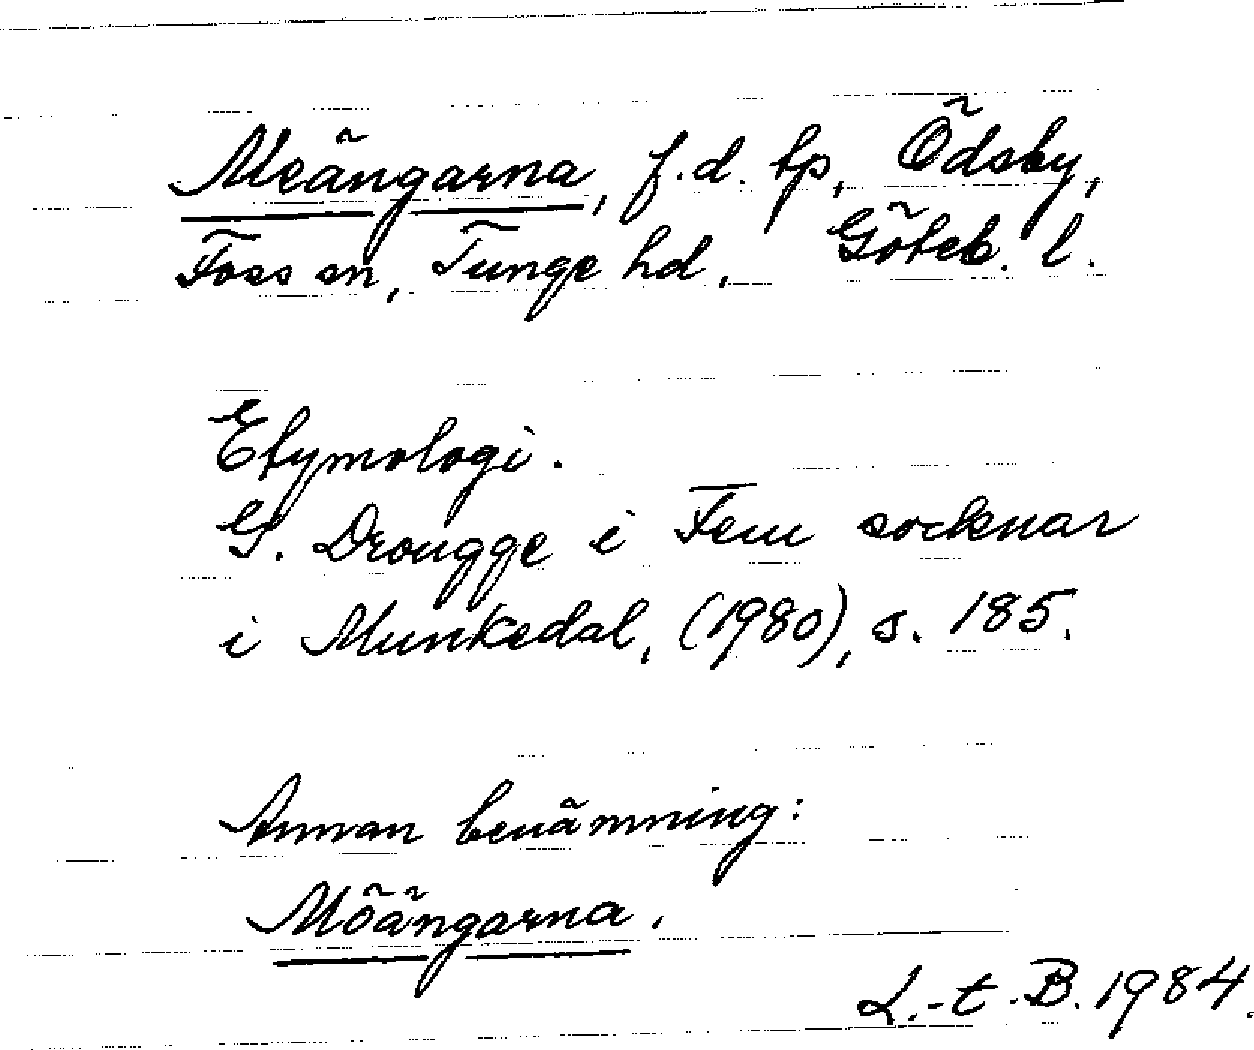 Meängarna, f.d. tp, Ödsby,
Foss sn, Tunge hd, Göteb. l.
Etymologi.
G. Drougge i Fem socknar
i Munkedal, (1980), s. 185.
Annan benämning:
Möängarna.
L.-t. B. 1984.